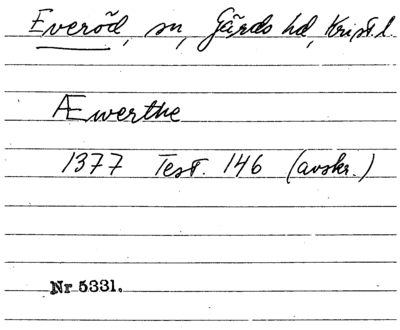 Everöd, sn, Gärds hd, Krist. l.
Æwerthe
1377 Test. 146 (avskr.)
Nr 5331.